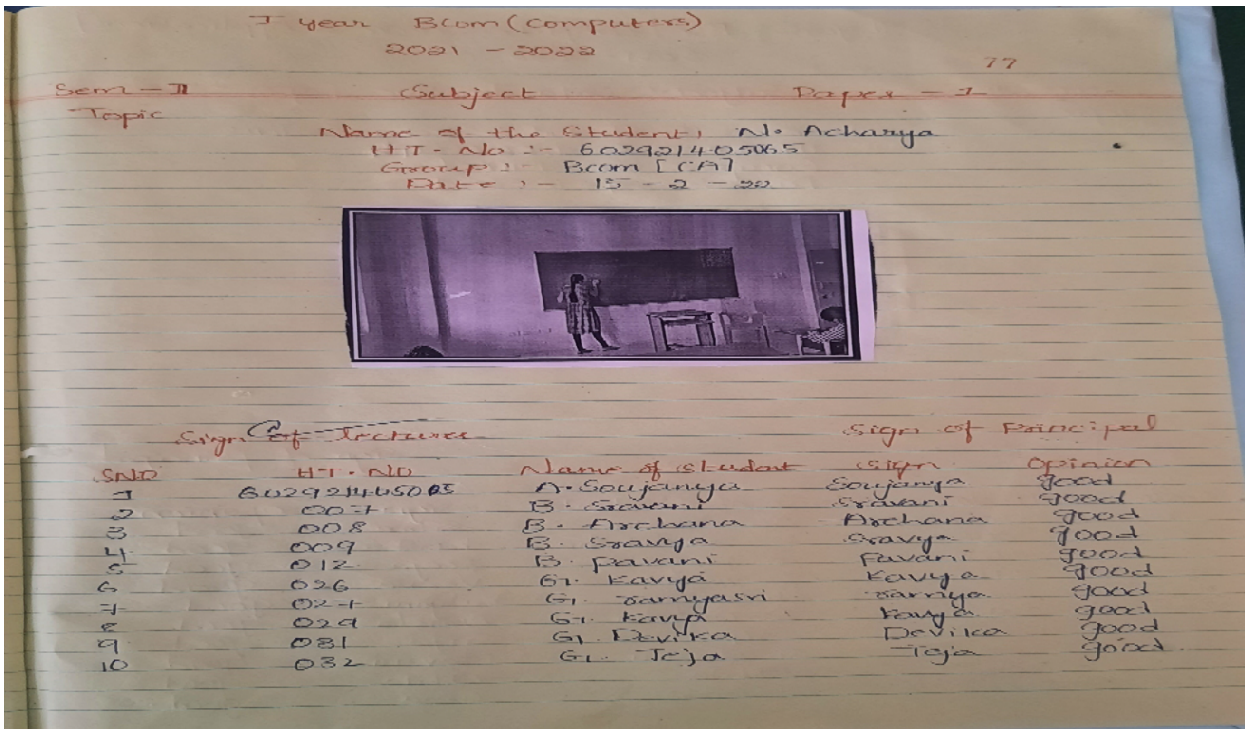 I year Bcom (computers)
2021 - 2022
77
Sem - II Subject Paper - I
Topic
Name of the Student: N. Acharya
H.T. No :- 602921405065
Group :- Bcom [CA]
Date :- 15 - 2 - 22
Sign of lectures Sign of Principal
SNO H.T. NO Name of student sign opinion
1 A. Soujanya Soujanya good
2 007 B. Sravani Sravani good
3 008 B. Archana Archana good
4 009 B. Sravya Sravya good
5 012 B. pavani Pavani good
6 026 G. Kavya Kavya good
7 027 G. ramyasri ramya good
8 029 G. Kavya Kavya good
9 031 G. Devika Devika good
10 032 G. Teja Teja good